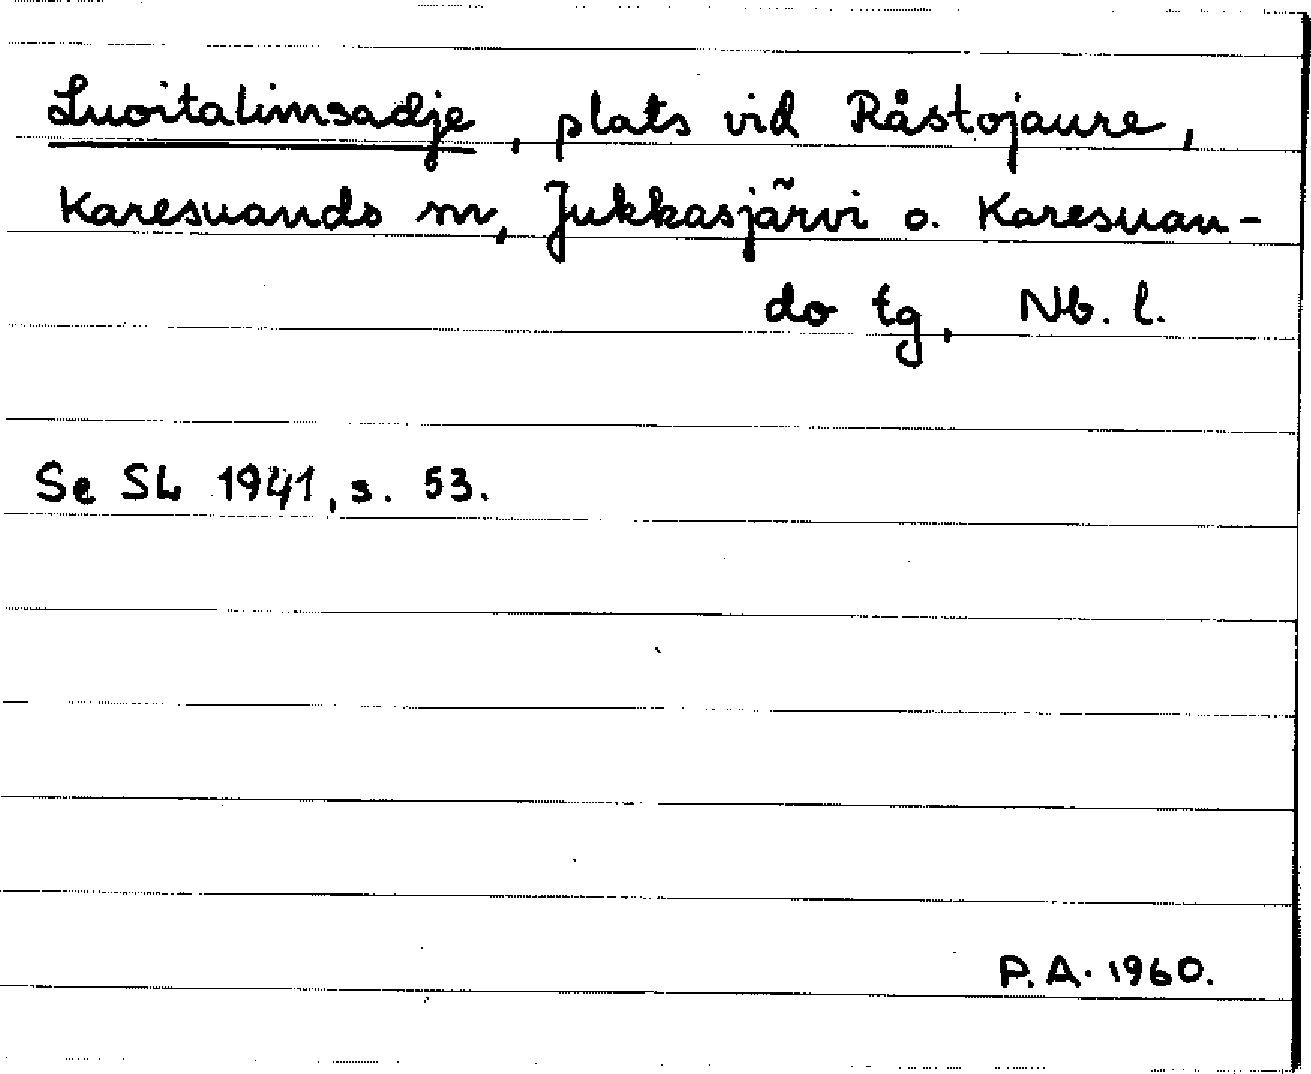 Luoitalimsadje, plats vid Råstojaure,
Karesuando m, Jukkasjärvi o. Karesuan-
do tg, Nb. l.
Se SL 1941, s. 53.
P.A. 1960.